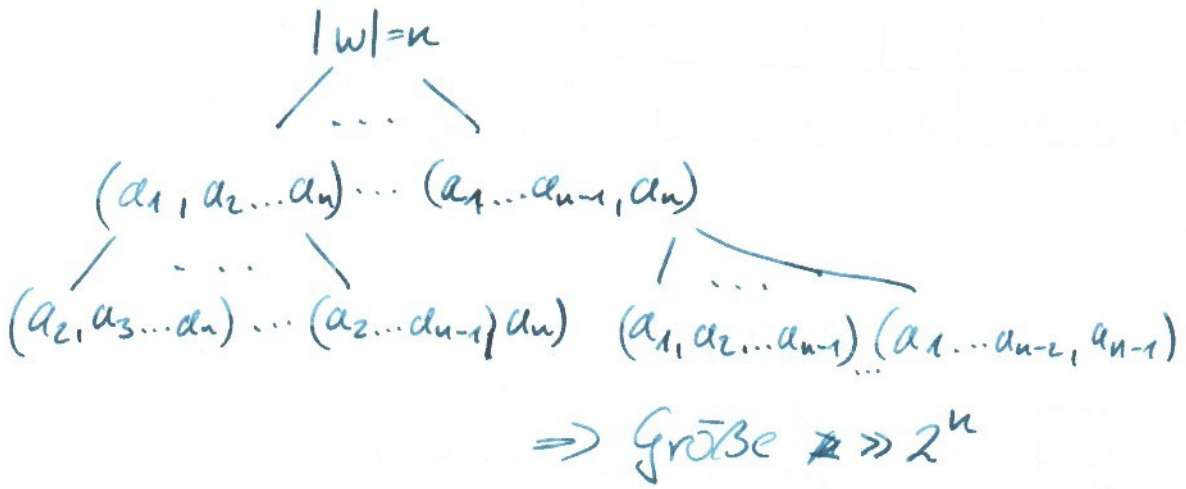 |w|=n
...
(a₁, a₂...aₙ)... (a₁...aₙ₋₁, aₙ)
... ...
(a₂, a₃...aₙ)... (a₂...aₙ₋₁, aₙ) (a₁, a₂...aₙ₋₁)...(a₁...aₙ₋₂, aₙ₋₁)
⇒ Größe >> 2ⁿ